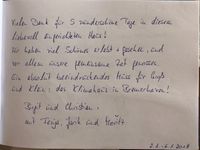 Vielen Dank für 5 wunderschöne Tage in diesem
liebevoll eingerichteten Haus!
Wir haben viel Schönes erlebt + gesehen, und
vor allem unsere gemeinsame Zeit genossen.
Ein absolut beeindruckendes Muss für Groß
und Klein: das Klimahaus in Bremerhaven!
Birgit und Christian,
mit Tanja, Jarik und Merlit
2.1.-6.1.2018